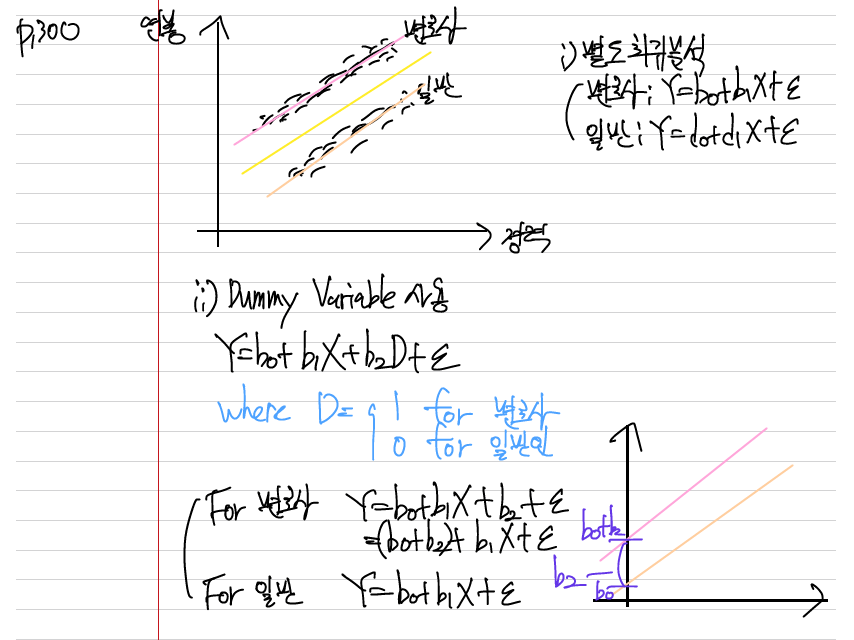 p.300
연봉
변호사
일반
경력
i) 별도 회귀분석
변호사 ; Y=b0+b1X+ε
일반 ; Y=d0+d1X+ε
ii) Dummy Variable 사용
Y=b0+b1X+b2D+ε
where D= { 1 for 변호사
0 for 일반인
For 변호사 Y=b0+b1X+b2+ε
=(b0+b2)+b1X+ε
For 일반 Y=b0+b1X+ε
b0+b2
b2
b0